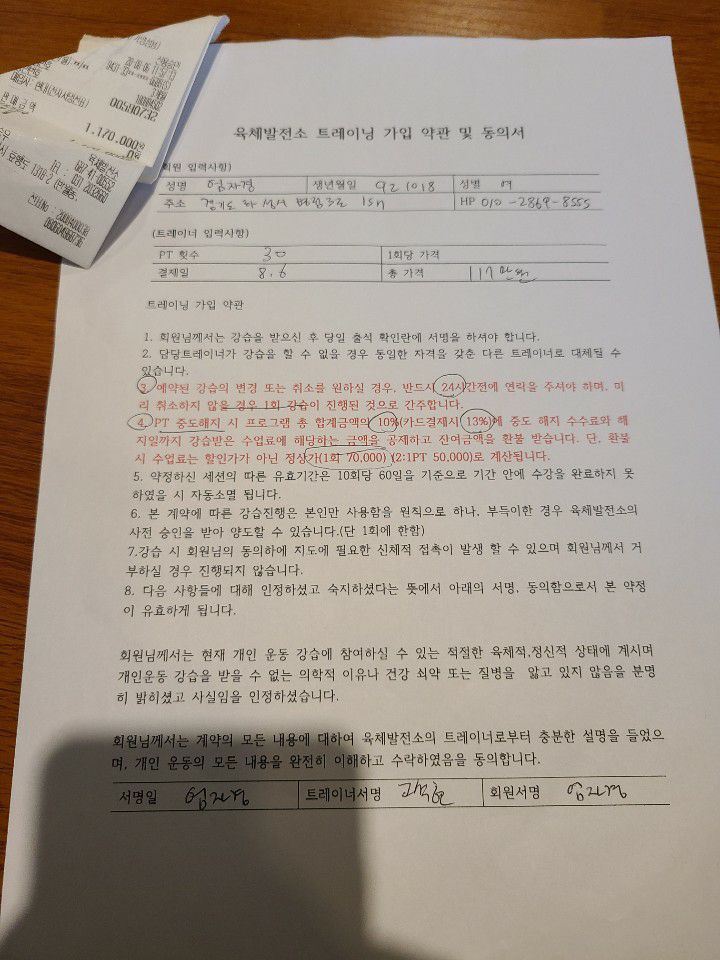 1,170,000원
육체발전소 트레이닝 가입 약관 및 동의서
회원 입력사항)
성명 엄자경 생년월일 921018 성별 여
주소 경기도 화성시 15 HP 010-2869-8555
(트레이너 입력사항)
PT 횟수 30 1회당 가격
결제일 8.6 총 가격 117만원
트레이닝 가입 약관
1. 회원님께서는 강습을 받으신 후 당일 출석 확인란에 서명을 하셔야 합니다.
2. 담당트레이너가 강습을 할 수 없을 경우 동일한 자격을 갖춘 다른 트레이너로 대체될 수
있습니다.
3. 예약된 강습의 변경 또는 취소를 원하실 경우, 반드시 24시간전에 연락을 주셔야 하며, 미
리 취소하지 않을 경우 1회 강습이 진행된 것으로 간주합니다.
4. PT 중도해지 시 프로그램 총 합계금액의 10%(카드결제시 13%)에 중도 해지 수수료와 해
지일까지 강습받은 수업료에 해당하는 금액을 공제하고 잔여금액을 환불 받습니다. 단, 환불
시 수업료는 할인가가 아닌 정상가(1회 70,000) (2:1PT 50,000)로 계산됩니다.
5. 약정하신 세션의 따른 유효기간은 10회당 60일을 기준으로 기간 안에 수강을 완료하지 못
하였을 시 자동소멸 됩니다.
6. 본 계약에 따른 강습진행은 본인만 사용함을 원칙으로 하나, 부득이한 경우 육체발전소의
사전 승인을 받아 양도할 수 있습니다.(단 1회에 한함)
7.강습 시 회원님의 동의하에 지도에 필요한 신체적 접촉이 발생 할 수 있으며 회원님께서 거
부하실 경우 진행되지 않습니다.
8. 다음 사항들에 대해 인정하셨고 숙지하셨다는 뜻에서 아래의 서명, 동의함으로서 본 약정
이 유효하게 됩니다.
회원님께서는 현재 개인 운동 강습에 참여하실 수 있는 적절한 육체적,정신적 상태에 계시며
개인운동 강습을 받을 수 없는 의학적 이유나 건강 쇠약 또는 질병을 앓고 있지 않음을 분명
히 밝히셨고 사실임을 인정하셨습니다.
회원님께서는 계약의 모든 내용에 대하여 육체발전소의 트레이너로부터 충분한 설명을 들었으
며, 개인 운동의 모든 내용을 완전히 이해하고 수락하였음을 동의합니다.
서명일 엄자경 트레이너서명 회원서명 엄자경